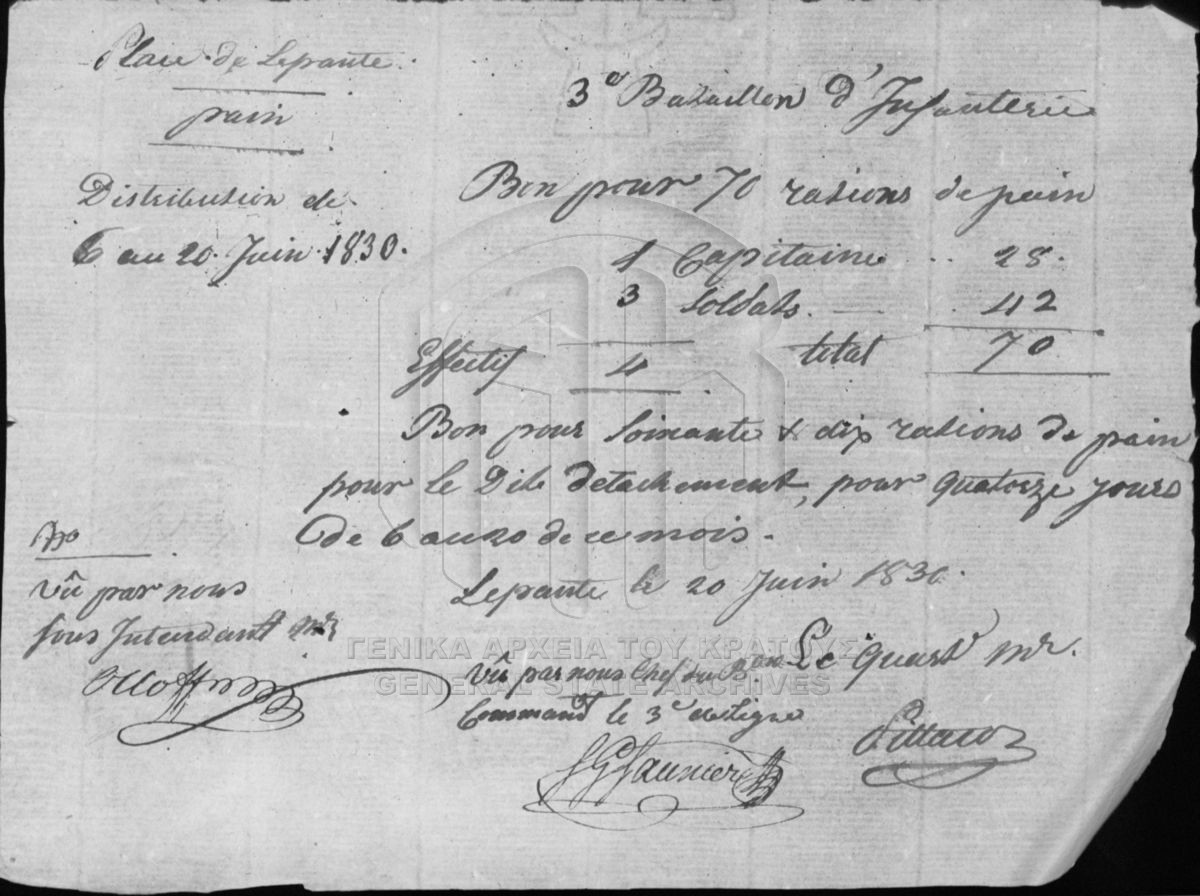 Place de Lepante.
pain
Distribution de
6 au 20 Juin 1830.
3e Bataillon d'Infanterie
Bon pour 70 rations de pain
1 Capitaine .. 28.
3 Soldats. — .. 42
Effectif 4 total 70
Bon pour Soixante & dix rations de pain
pour le Dit détachement, pour quatorze jours
de 6 au 20 de ce mois.
Lepante le 20 Juin 1830.
Vû par nous
Sous Intendant
Le Quart Mr.
Vû par nous Chef du Bon
Command le 3e de ligne
ΓΕΝΙΚΑ ΑΡΧΕΙΑ ΤΟΥ ΚΡΑΤΟΥΣ
GENERAL STATE ARCHIVES